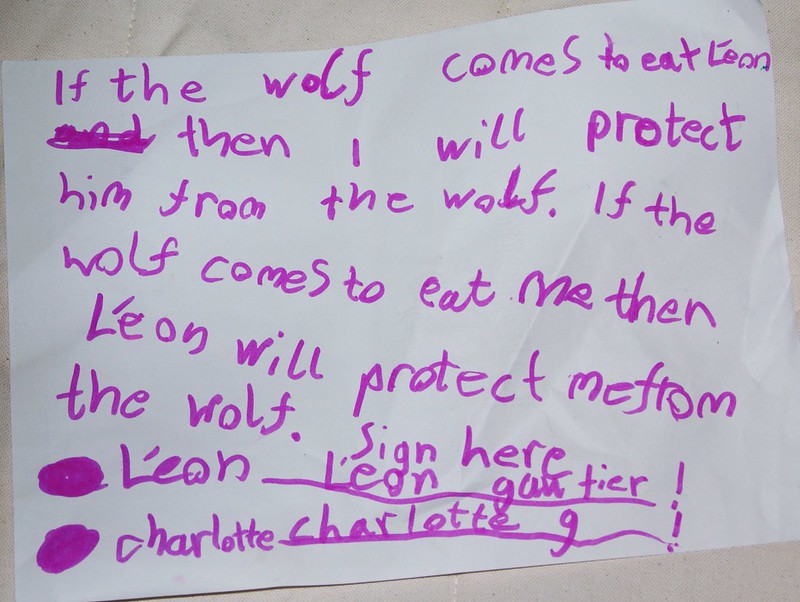 If the wolf comes to eat Léon
and then I will protect
him from the wolf. If the
wolf comes to eat me then
Léon will protect me from
the wolf.
Sign here
Léon Léon gautier !
charlotte charlotte g !